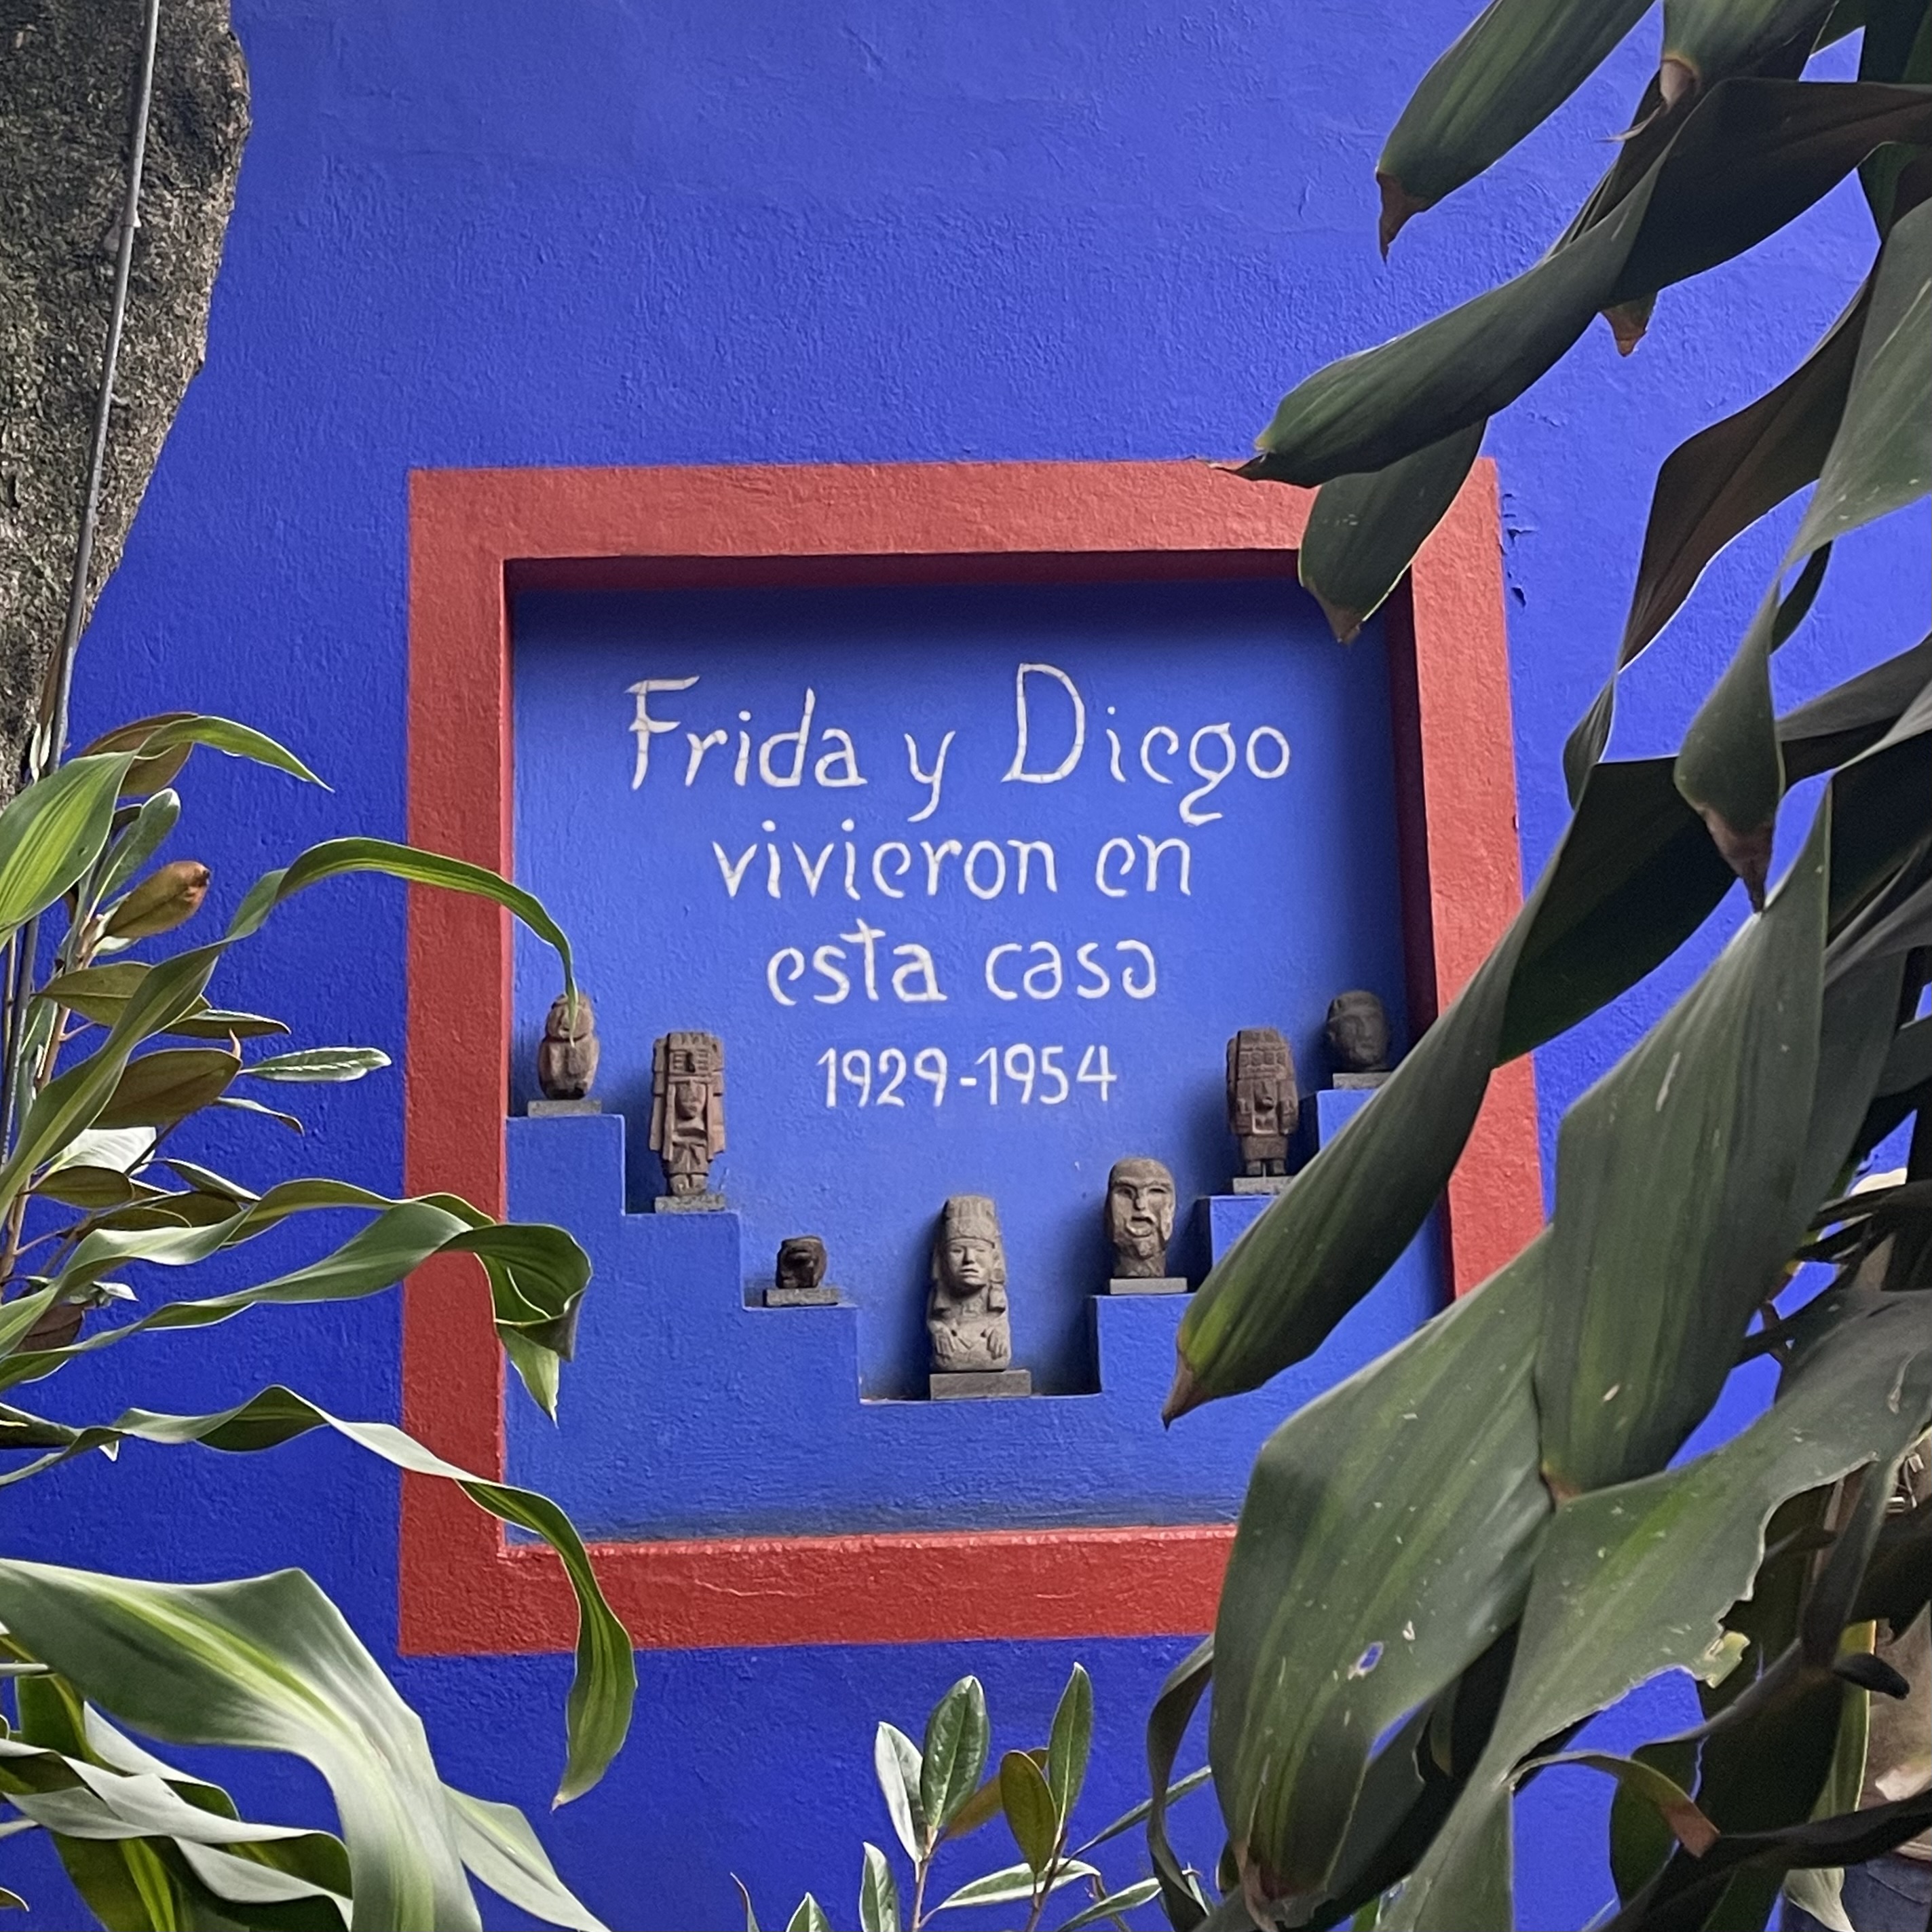 Frida y Diego
vivieron en
esta casa
1929-1954